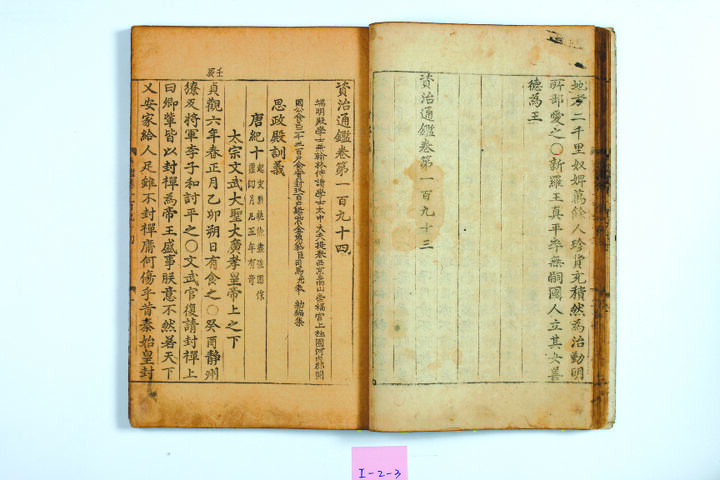 地方二千里奴婢萬餘人珍貨充積然為治勤明
所部愛之〇新羅王真平卒無嗣國人立其女善
德為王
資治通鑑卷第一百九十三
資治通鑑卷第一百九十四
端明殿學士兼翰林侍讀學士太中大夫提擧西京嵩山崇福宮上柱國河內郡開
國公食邑二千六百戶食實封
司馬光奉 勑編集
思政殿訓義
唐紀十
起玄黓執徐盡強圉作
噩四月凡五年有奇
太宗文武大聖大廣孝皇帝上之下
壬辰
貞觀六年春正月乙卯朔日有食之〇癸酉靜州
獠反將軍李子和討平之〇文武官復請封禪上
曰卿輩皆以封禪為帝王盛事朕意不然若天下
乂安家給人足雖不封禪庸何傷乎昔秦始皇封
I-2-3